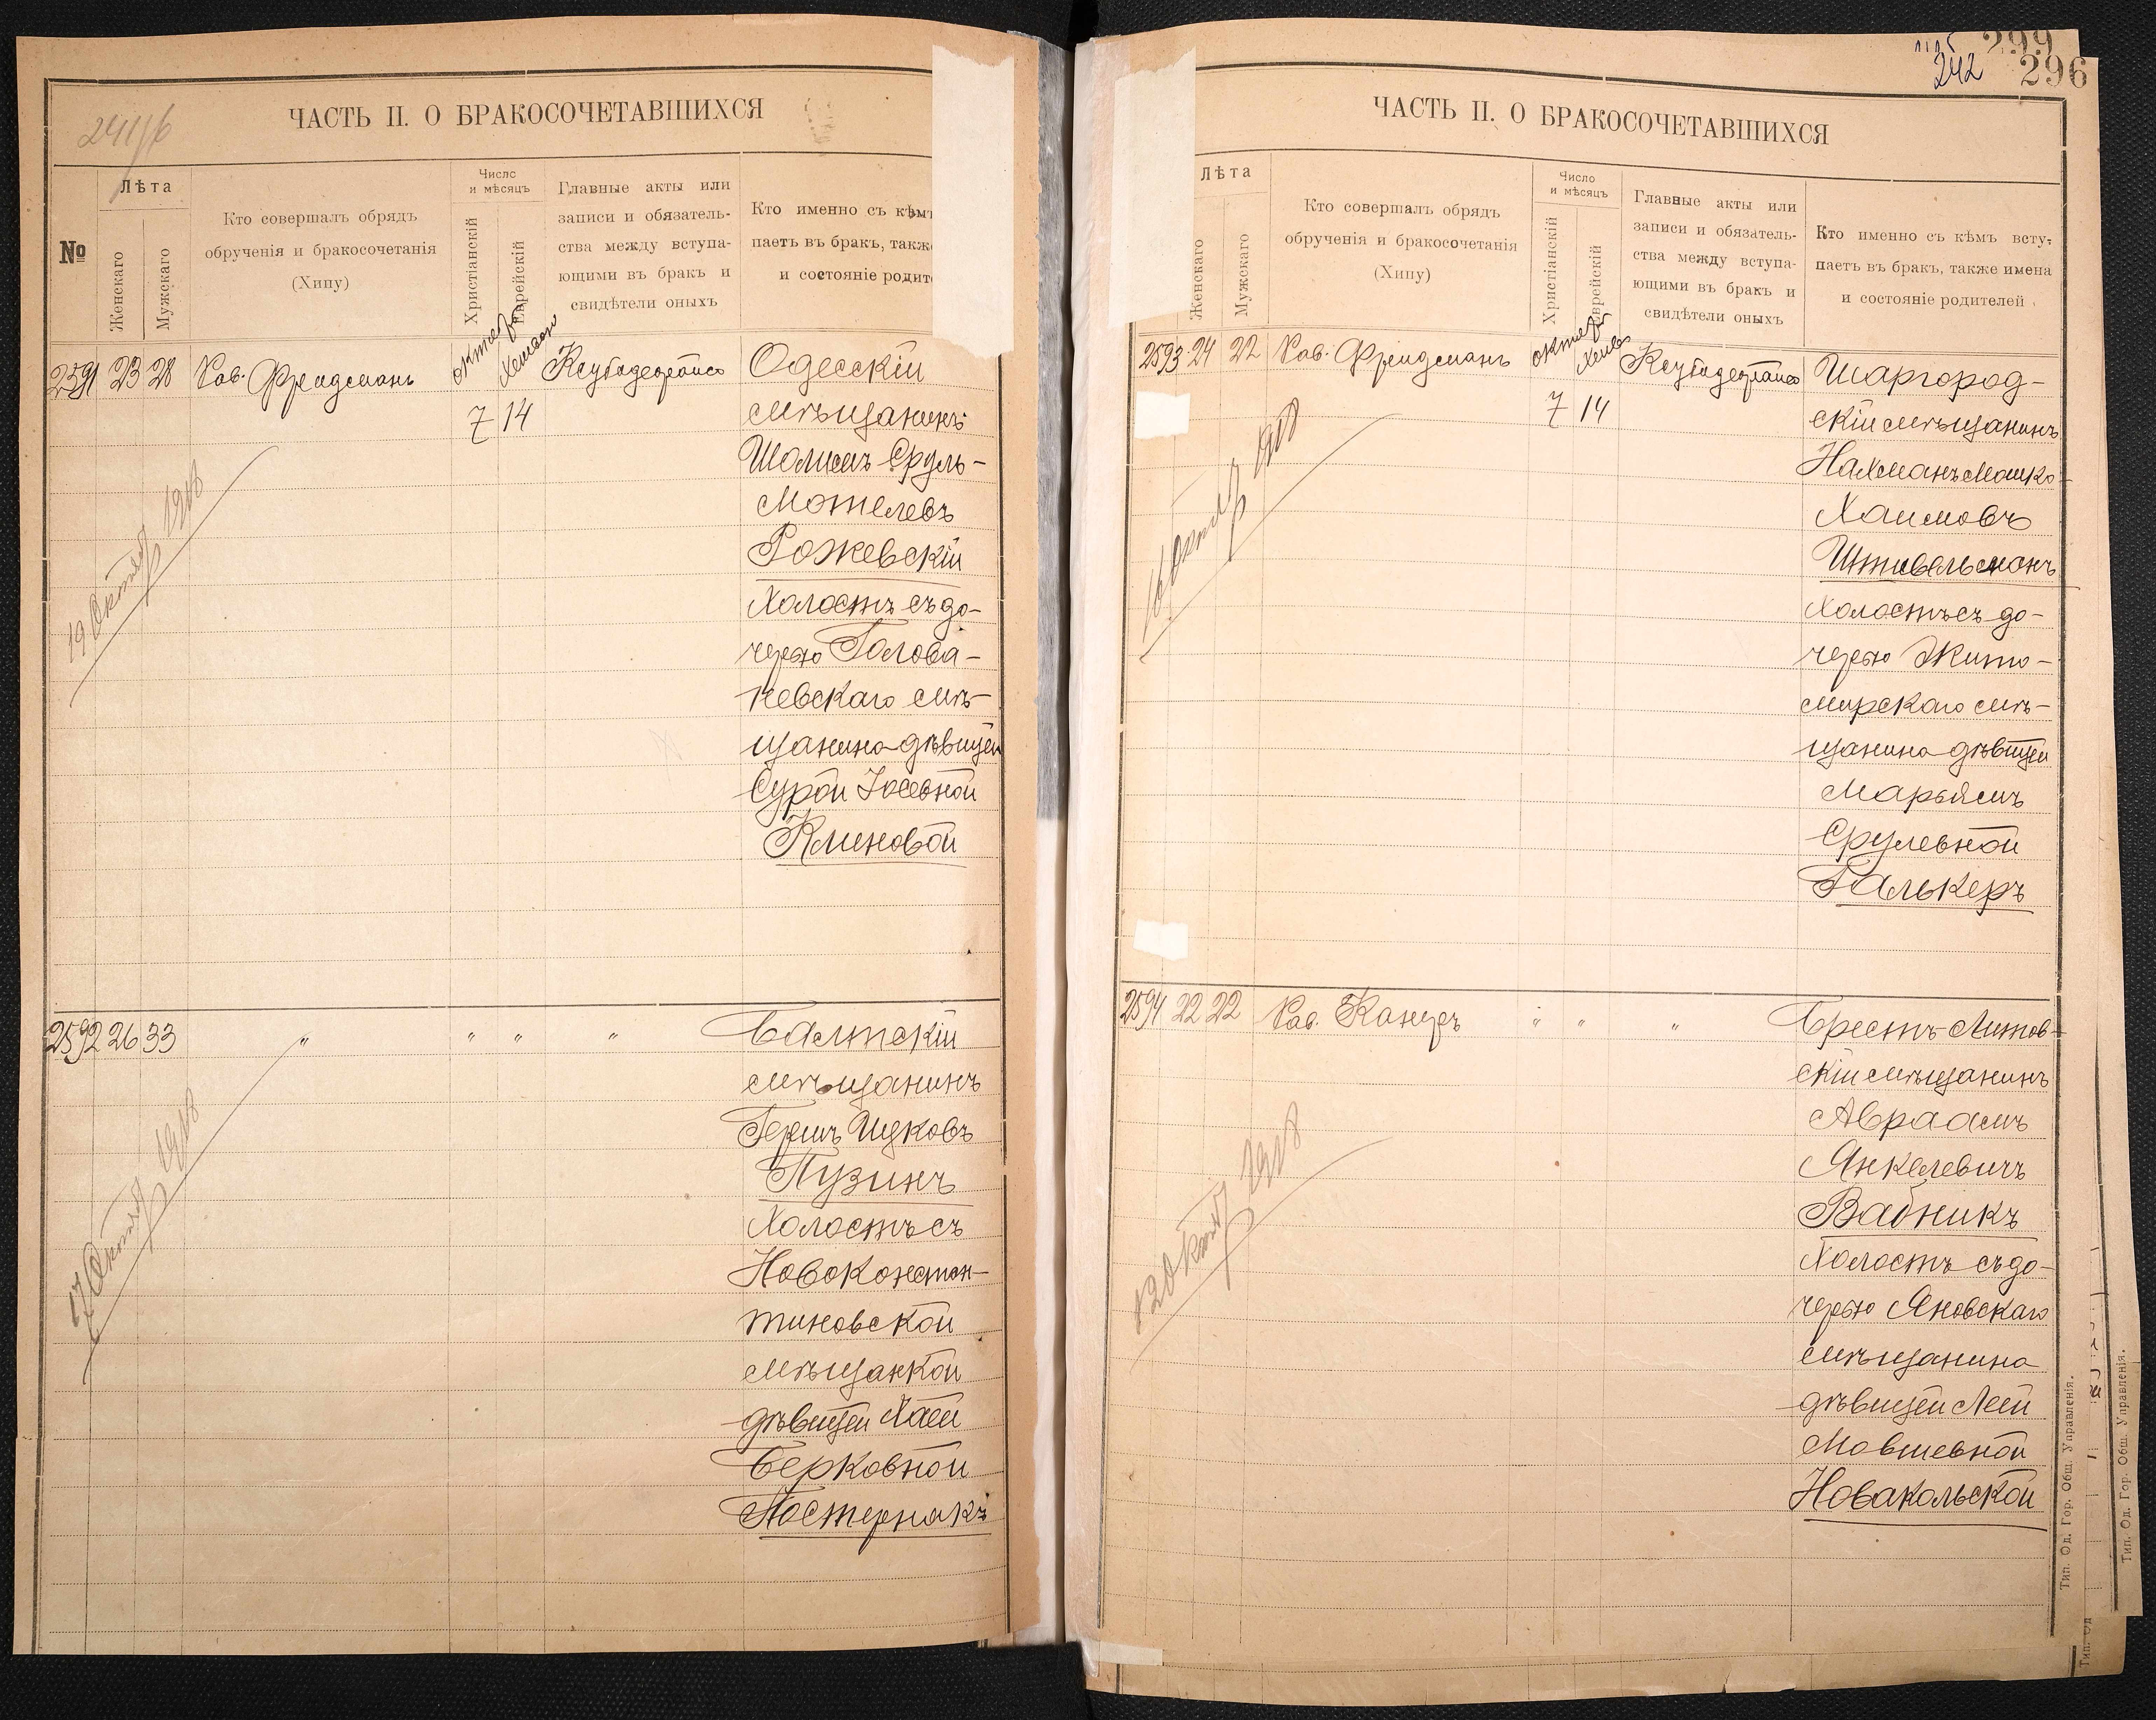 241об
ЧАСТЬ II. О БРАКОСОЧЕТАВШИХСЯ
№
Лѣта
Женскаго
Мужскаго
Кто совершалъ обрядъ
обрученія и бракосочетанія
(Хипу)
Число
и мѣсяцъ
Христіанскій
Еврейскій
Главные акты или
записи и обязатель-
ства между вступа-
ющими въ бракъ и
свидѣтели оныхъ
Кто именно съ кѣм
паетъ въ бракъ, такж
и состояніе родит
2591 23 28 Рав. Фрейдманъ
октября
Хешвон
7 14
Одесскій
мѣщанинъ
Шолимъ Сруль-
Мотелевъ
Рожевскій
Холостъ съ до-
черью Голова-
невскаго мѣ-
щанина дѣвицей
Сурой Іосевной
Клиновой
19 Октября 1918
2592 26 33 " " " "
Балтскій
мѣщанинъ
Гершъ Ицковъ
Пузинъ
Холостъ съ
Новоконстан-
тиновской
мѣщанкой
дѣвицей Хаей
Берковной
Постернакъ
17 Октября 1918
299
242 296
ЧАСТЬ II. О БРАКОСОЧЕТАВШИХСЯ
Лѣта
Женскаго
Мужскаго
Кто совершалъ обрядъ
обрученія и бракосочетанія
(Хипу)
Число
и мѣсяцъ
Христіанскій
Еврейскій
Главные акты или
записи и обязатель-
ства между вступа-
ющими въ бракъ и
свидѣтели оныхъ
Кто именно съ кѣмъ всту-
паетъ въ бракъ, также имена
и состояніе родителей
2593 24 22 Рав. Фрейдманъ
октября
7 14
Шаргород-
скій мѣщанинъ
Нахманъ Мошко-
Хаимовъ
Штивельманъ
Холостъ съ до-
черью Жито-
мирскаго мѣ-
щанина дѣвицей
Марьямъ
Срулевной
Галькеръ
16 Октября 1918
2594 22 22 Рав. Канцеръ " " "
Брестъ-Литов-
скій мѣщанинъ
Авраамъ
Янкелевичъ
Вабникъ
Холостъ съ до-
черью Яновскаго
мѣщанина
дѣвицей Леей
Мовшевной
Новакольской
Октября 1918
Тип. Од. Гор. Общ. Управленія.
Тип. Од. Гор. Общ. Управленія.
Тип. Од